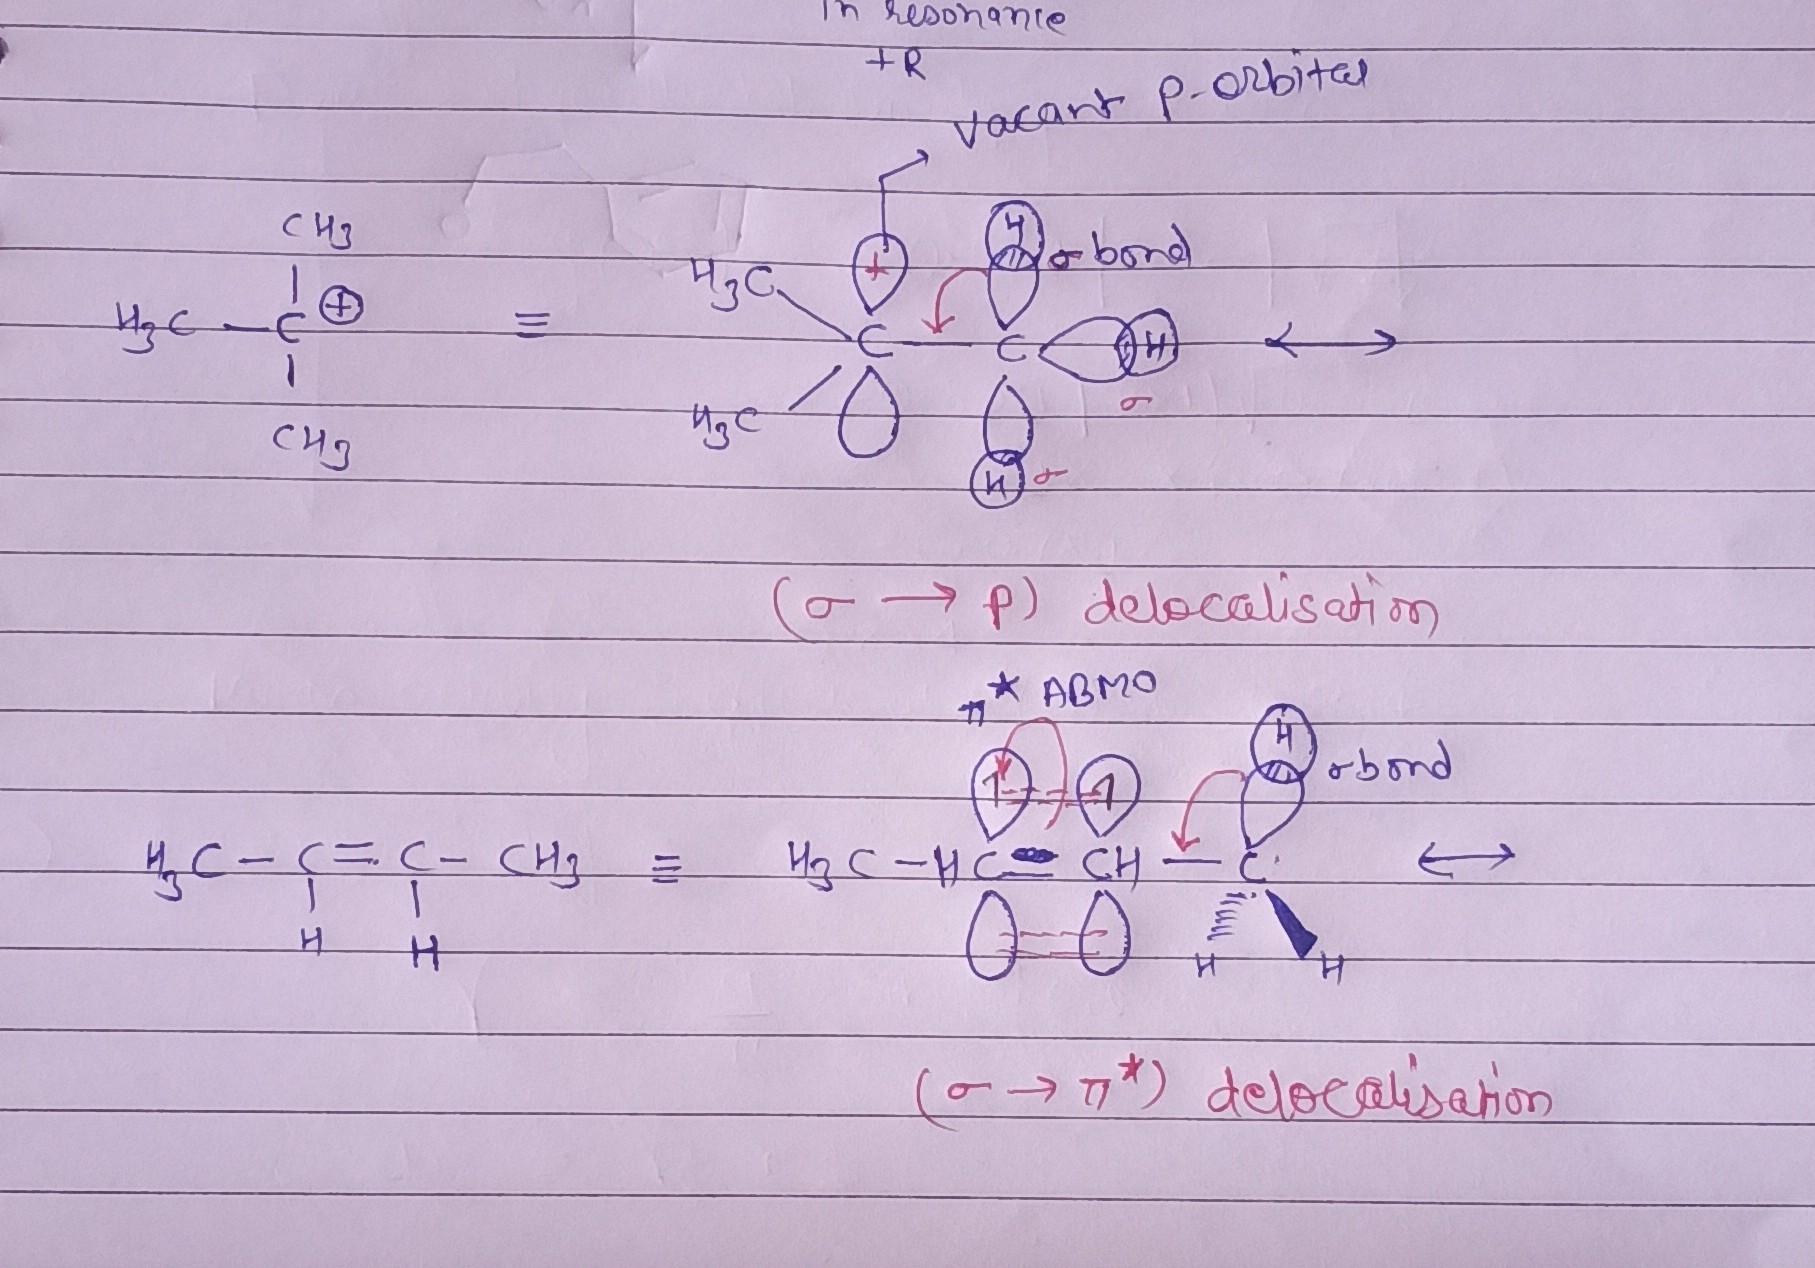 In resonance
+R
vacant p-orbital
CH3
H3C – C ⊕ ≡
CH3
H3C
+
H
σ-bond
C – C
H
σ
⟷
H3C
H
σ
(σ → p) delocalisation
π* ABMO
H
σ bond
H3C – C = C – CH3 ≡ H3C – HC = CH – C ⟷
H H
H H
(σ → π*) delocalisation